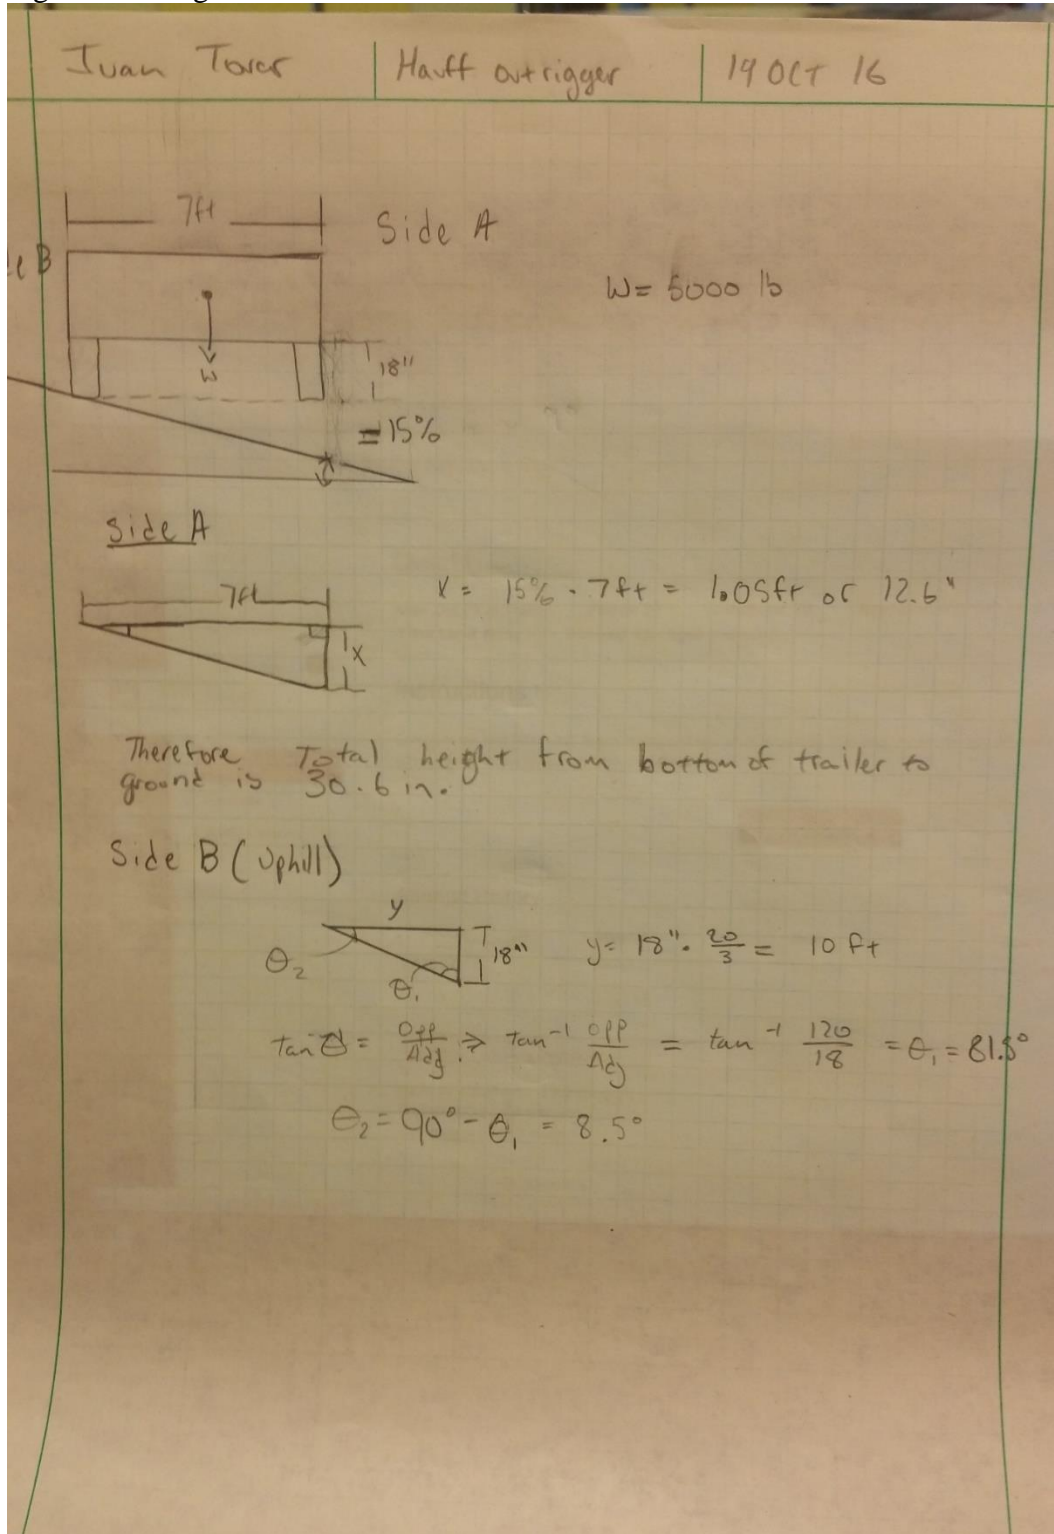 Juan Tovar | Hauff outrigger | 19 OCT 16
7ft
Side A
B
W= 5000 lb
18"
W
= 15%
x
Side A
7ft
x
X = 15% · 7ft = 1.05ft or 12.6"
Therefore Total height from bottom of trailer to
ground is 30.6 in.
Side B (Uphill)
y
18"
θ₂
θ₁
y= 18" · 20/3 = 10 ft
tan θ = Opp/Adj ⇒ tan⁻¹ Opp/Adj = tan⁻¹ 120/18 = θ₁ = 81.5°
θ₂ = 90° - θ₁ = 8.5°